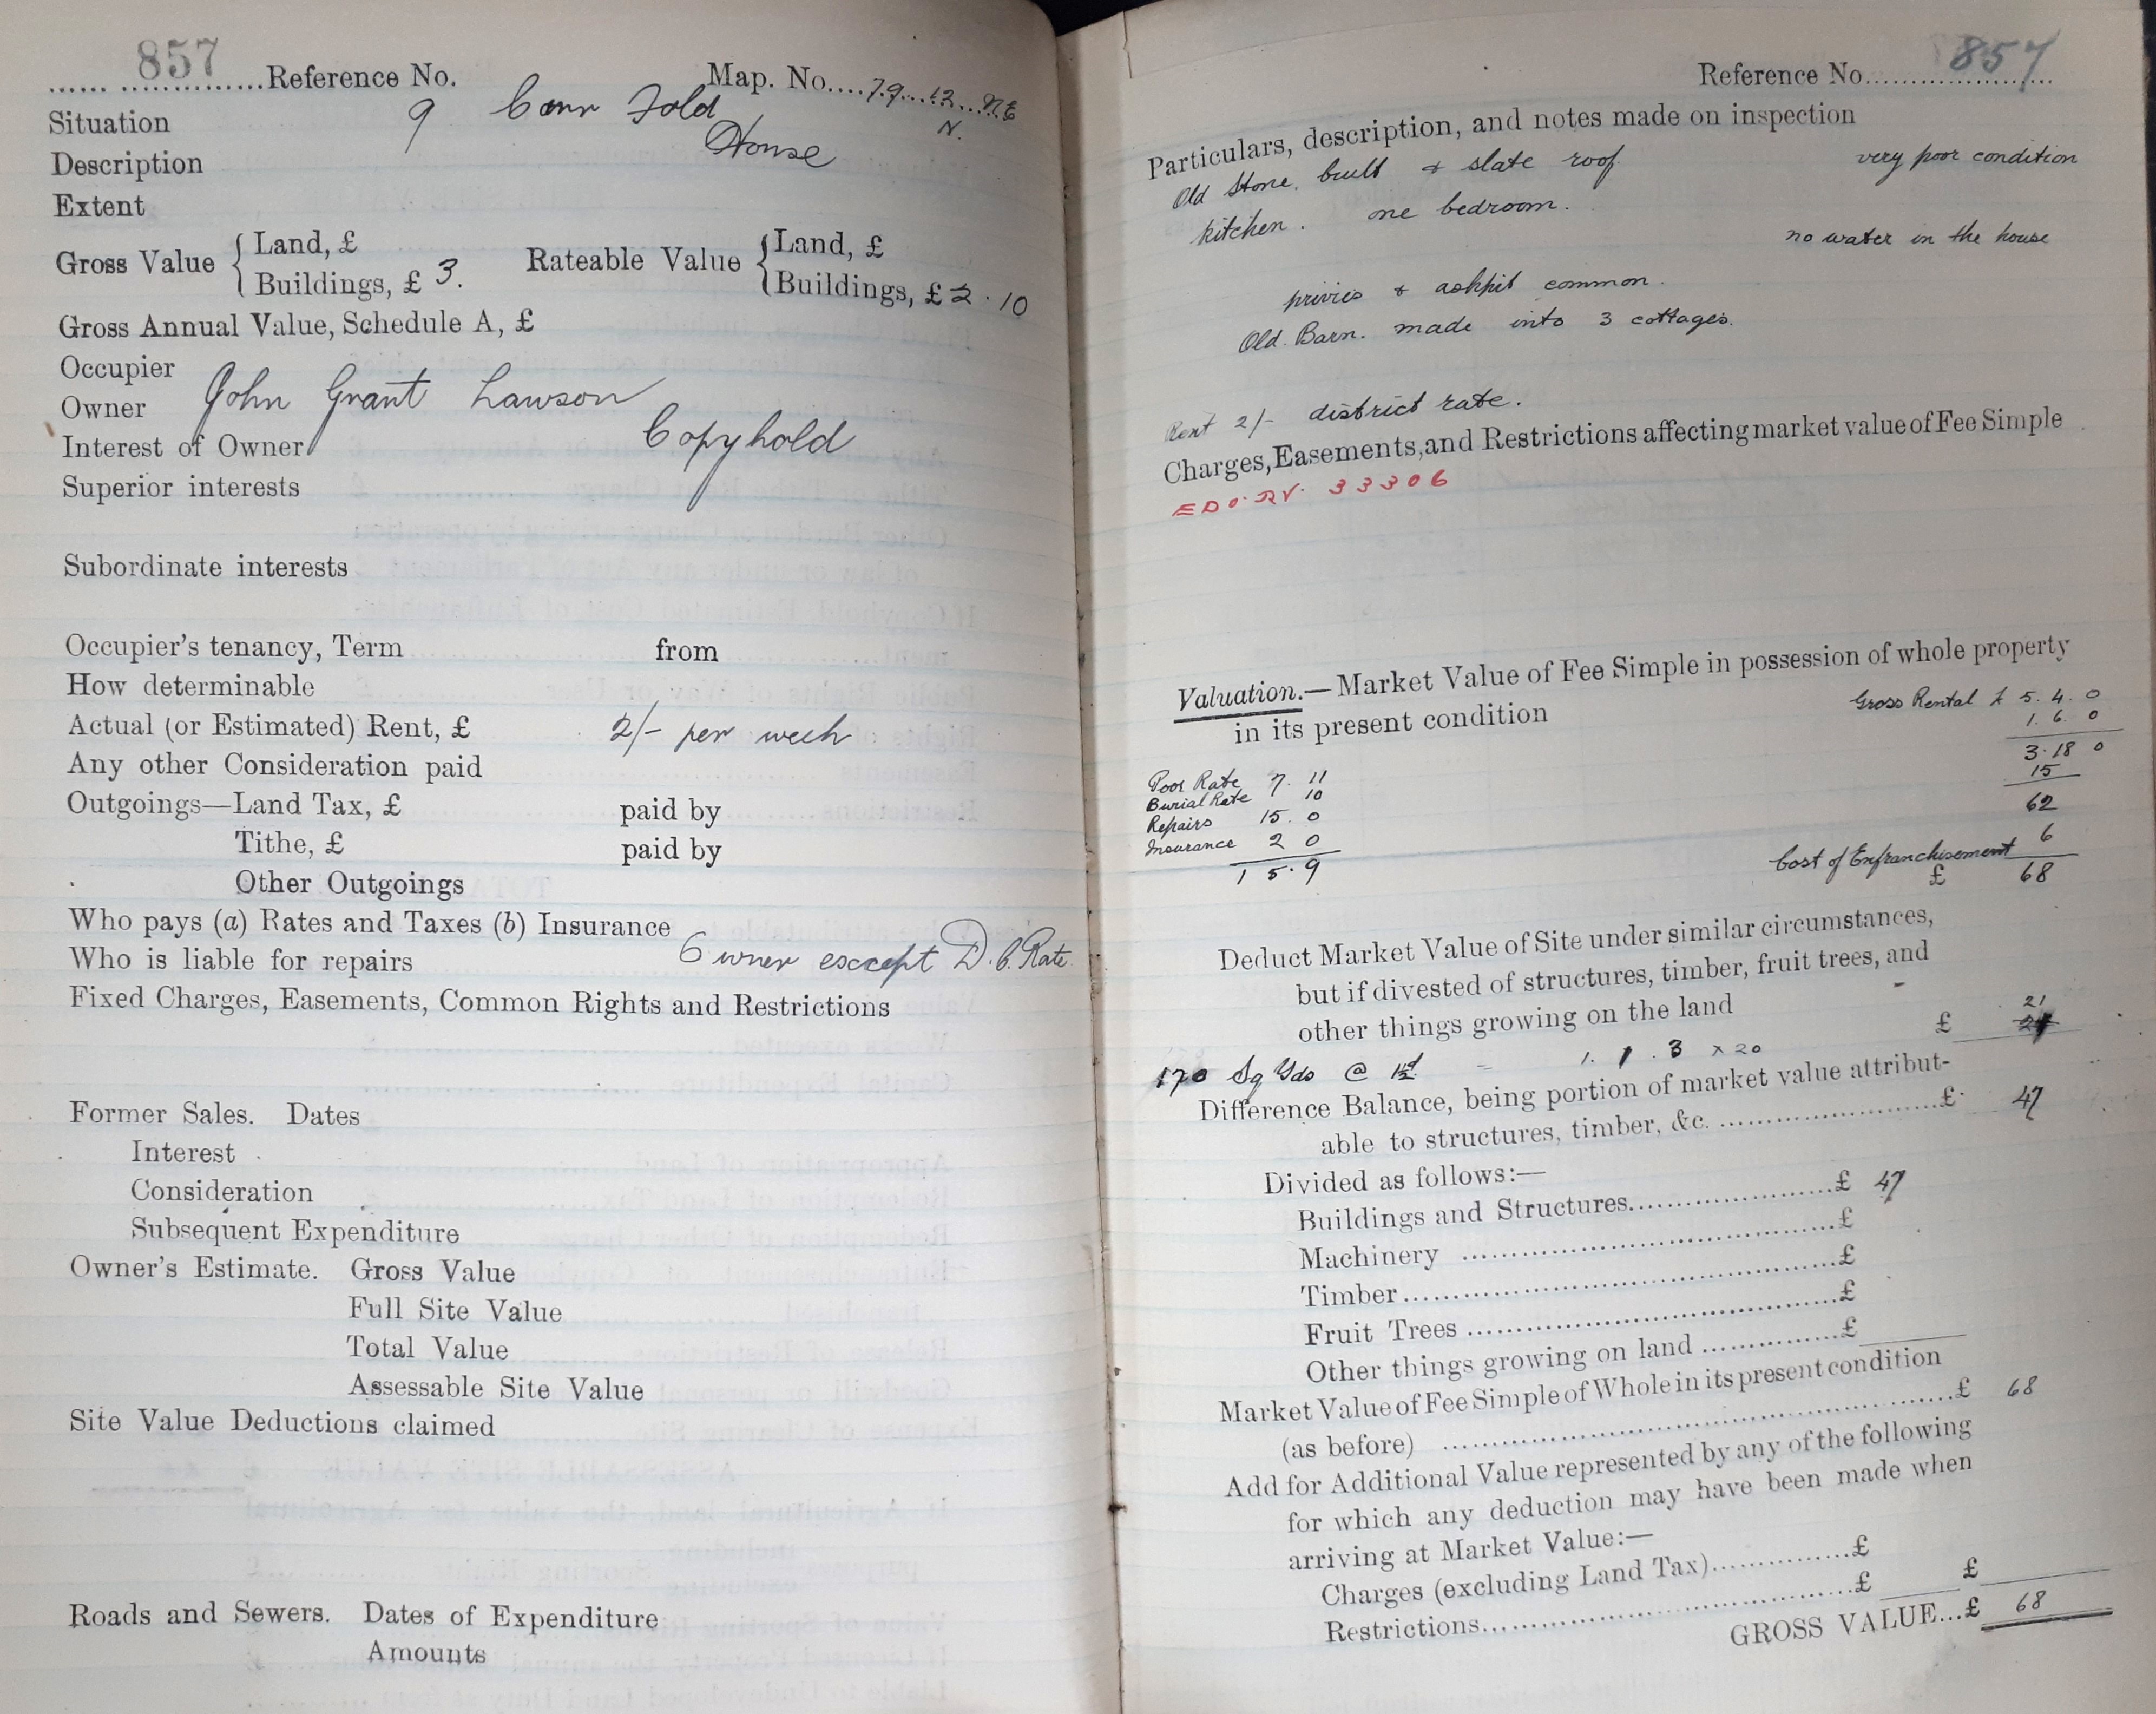 857 Reference No. Map. No. 79. 12. N.E
N.
Situation 9 Carr Fold
Description House
Extent
Gross Value { Land, £
Buildings, £ 3. Rateable Value { Land, £
Buildings, £ 2 . 10
Gross Annual Value, Schedule A, £
Occupier
Owner John Grant Lawson
Interest of Owner Copyhold
Superior interests
Subordinate interests
Occupier's tenancy, Term from
How determinable
Actual (or Estimated) Rent, £ 2/- per week
Any other Consideration paid
Outgoings—Land Tax, £ paid by
Tithe, £ paid by
Other Outgoings
Who pays (a) Rates and Taxes (b) Insurance
Who is liable for repairs Owner except D. C. Rate
Fixed Charges, Easements, Common Rights and Restrictions
Former Sales. Dates
Interest
Consideration
Subsequent Expenditure
Owner's Estimate. Gross Value
Full Site Value
Total Value
Assessable Site Value
Site Value Deductions claimed
Roads and Sewers. Dates of Expenditure
Amounts
Reference No. 857
Particulars, description, and notes made on inspection
Old Stone. built & slate roof. very poor condition
kitchen . one bedroom.
no water in the house
privies & ashpit common.
Old Barn. made into 3 cottages.
Rent 2/- district rate.
Charges, Easements, and Restrictions affecting market value of Fee Simple
33306
Valuation.— Market Value of Fee Simple in possession of whole property
in its present condition
Gross Rental £ 5. 4. 0
1. 6. 0
3. 18 0
15
62
6
Cost of Enfranchisement
£ 68
Poor Rate 7. 11
Burial Rate 10
Repairs 15. 0
Insurance 2 0
1 5. 9
Deduct Market Value of Site under similar circumstances,
but if divested of structures, timber, fruit trees, and
other things growing on the land £ 21
170 Sq Yds @ 1½d = 1. 1. 3 x 20
Difference Balance, being portion of market value attribut-
able to structures, timber, &c. £ 47
Divided as follows:—
Buildings and Structures £ 47
Machinery £
Timber £
Fruit Trees £
Other things growing on land £
Market Value of Fee Simple of Whole in its present condition
(as before) £ 68
Add for Additional Value represented by any of the following
for which any deduction may have been made when
arriving at Market Value:—
Charges (excluding Land Tax) £
Restrictions £ £
GROSS VALUE...£ 68